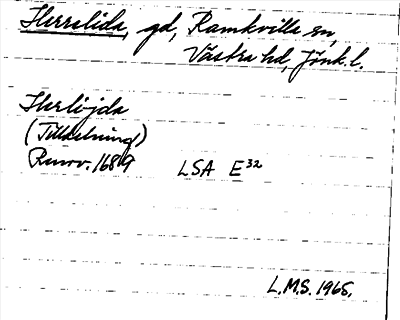 Herrelida, gd, Ramkvilla sn,
Västra hd, Jönk. l.
Herlijda
(Tillaelning)
Rmrv. 1689 LSA E 32
L.M.S. 1965.